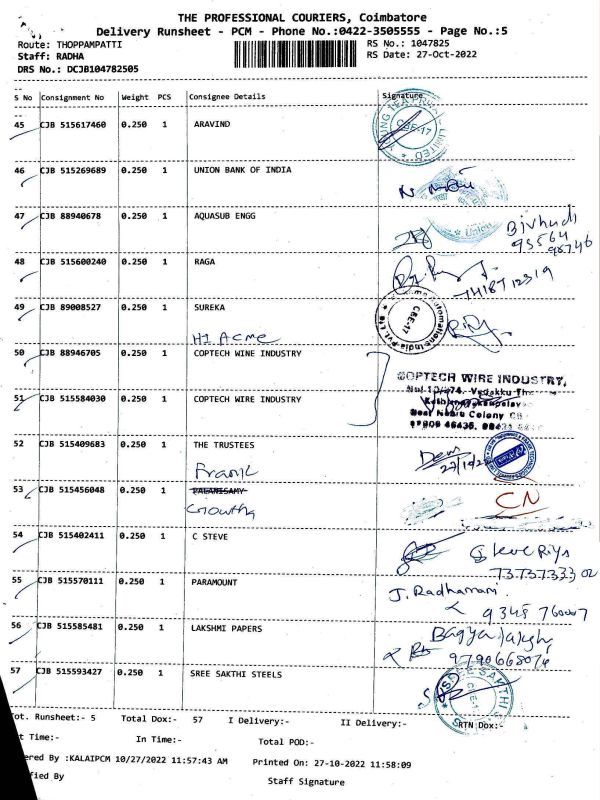 THE PROFESSIONAL COURIERS, Coimbatore
Delivery Runsheet - PCM - Phone No.:0422-3505555 - Page No.:5
Route: THOPPAMPATTI RS No.: 1047825
Staff: RADHA RS Date: 27-Oct-2022
DRS No.: DCJB104782505
S No Consignment No Weight PCS Consignee Details Signature
45 CJB 515617460 0.250 1 ARAVIND
CBE-17
46 CJB 515269689 0.250 1 UNION BANK OF INDIA
47 CJB 88940678 0.250 1 AQUASUB ENGG
Union
95564
98746
48 CJB 515600240 0.250 1 RAGA
49 CJB 89008527 0.250 1 SUREKA
CBE-17
HI Acme
50 CJB 88946705 0.250 1 COPTECH WIRE INDUSTRY
COPTECH WIRE INDUSTRY,
51 CJB 515584030 0.250 1 COPTECH WIRE INDUSTRY
Colony
52 CJB 515409683 0.250 1 THE TRUSTEES
Frank
53 CJB 515456048 0.250 1 PALANISAMY
CN
Growth
54 CJB 515402411 0.250 1 C STEVE
55 CJB 515570111 0.250 1 PARAMOUNT
J. Radhamani
9345 760007
56 CJB 515585481 0.250 1 LAKSHMI PAPERS
9790668076
57 CJB 515593427 0.250 1 SREE SAKTHI STEELS
ot. Runsheet:- 5 Total Dox:- 57 I Delivery:- II Delivery:- RTN Dox:-
t Time:- In Time:- Total POD:-
ered By :KALAIPCM 10/27/2022 11:57:43 AM Printed On: 27-10-2022 11:58:09
fied By Staff Signature